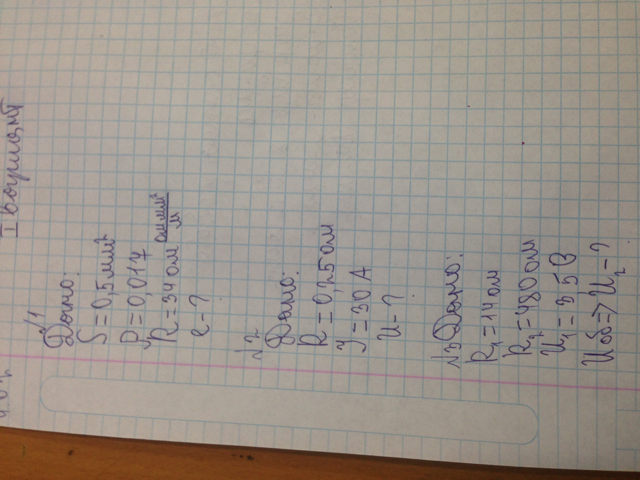 I вариант
№1
Дано:
S = 0,5 мм²
ρ = 0,017 ом мм²/м
R = 34 ом
l - ?
№2
Дано:
R = 0,25 ом
J = 30 А
U - ?
№3 Дано:
R₁ = 14 ом
R₂ = 480 ом
U₁ = 35 В
Uоб => U₂ - ?